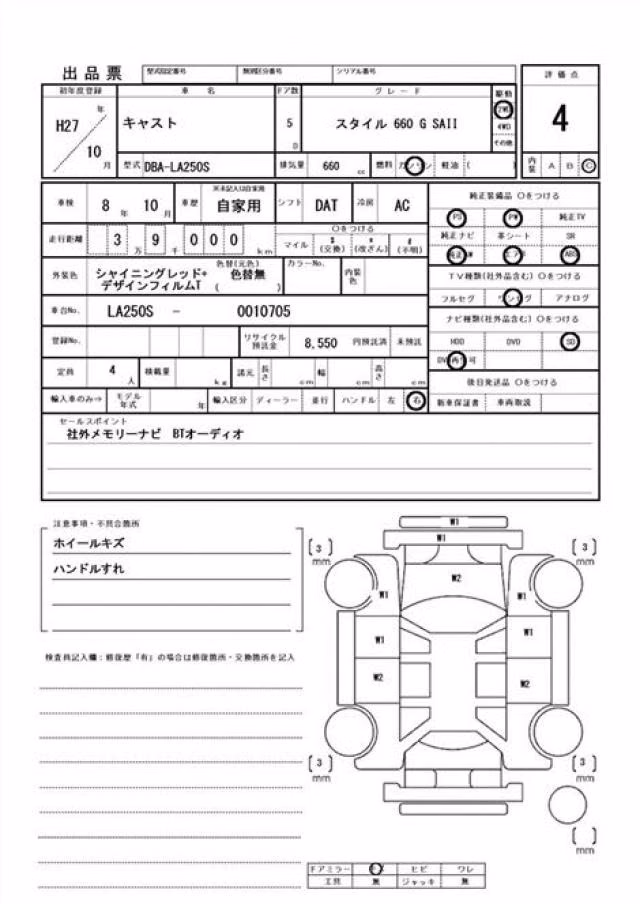 出品票 型式指定番号 類別区分番号 シリアル番号
初年度登録 車名 ドア数 グレード 駆動 評価点
H27 年 10 月 キャスト 5 D スタイル 660 G SAII 2WD 4WD その他 4
型式 DBA-LA250S 排気量 660 cc 燃料 ガソリン 軽油 ( ) 内装 A B C
車検 8 年 10 月 車歴 ※未記入は自家用 自家用 シフト DAT 冷房 AC
走行距離 3 万 9 千 0 0 0 km ○をつける マイル $ (交換) * (改ざん) # (不明)
外装色 シャイニングレッド+ デザインフィルムT 色替(元色) 色替無 ( ) カラーNo. 内装色
車台No. LA250S - 0010705
登録No. リサイクル預託金 8,550 円預託済 未預託
定員 4 人 積載量 kg 諸元 長さ cm 幅 cm 高さ cm
輸入車のみ⇒ モデル年式 年 輸入区分 ディーラー 並行 ハンドル 左 右
純正装備品 ○をつける
PS PW 純正TV
純正ナビ 革シート SR
純正AW エアB ABS
TV種類(社外品含む) ○をつける
フルセグ ワンセグ アナログ
ナビ種類(社外品含む) ○をつける
HDD DVD SD
DVD再生可
後日発送品 ○をつける
新車保証書 車両取説
セールスポイント
社外メモリーナビ BTオーディオ
注意事項・不具合箇所
ホイールキズ
ハンドルすれ
検査員記入欄:修復歴「有」の場合は修復箇所・交換箇所を記入
W1
W1
[3] mm [3] mm
W2
W1 W1
W1 W1
W2 W2
[3] mm [3] mm
[ ] mm
ドアミラー キズ ヒビ ワレ
工具 無 ジャッキ 無